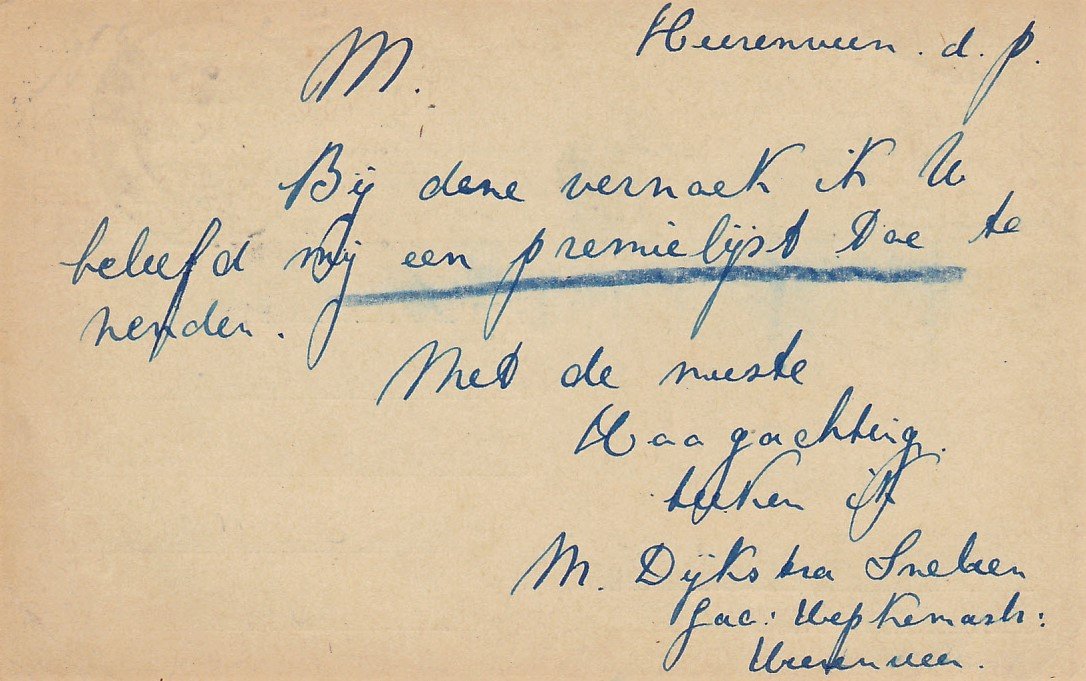 Heerenveen. d. p.
M.
Bij deze verzoek ik U
beleefd mij een premielijst Doe te
zenden.
Met de meeste
Hoogachting.
teeken ik
M. Dijkstra
Jac: Hepkemastr:
Heerenveen.